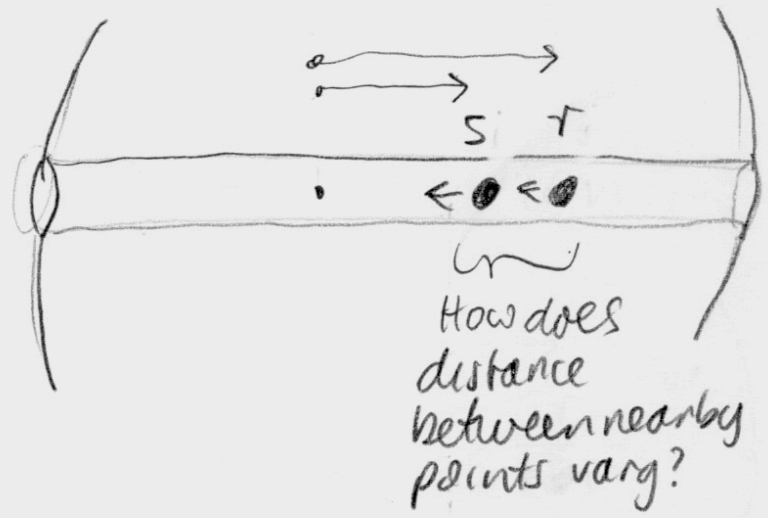 S r
How does
distance
between nearby
points vary?